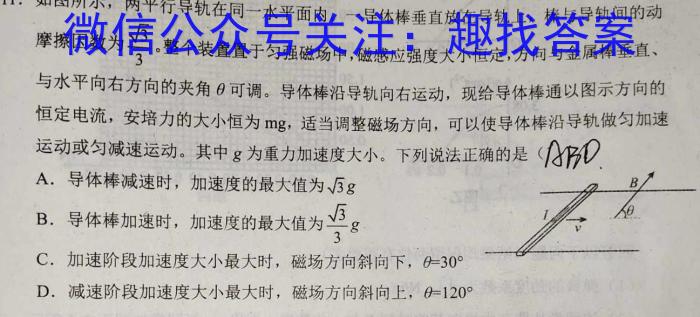 11. 如图所示，两平行导轨在同一水平面内。一导体棒垂直放在导轨上，棒与导轨间的动
微信公众号关注：趣找答案
摩擦因数为√3/3。整个装置置于匀强磁场中，磁感应强度大小恒定，方向与金属棒垂直、
与水平向右方向的夹角θ可调。导体棒沿导轨向右运动，现给导体棒通以图示方向的
恒定电流，安培力的大小恒为mg，适当调整磁场方向，可以使导体棒沿导轨做匀加速
运动或匀减速运动。其中g为重力加速度大小。下列说法正确的是（ABD
A．导体棒减速时，加速度的最大值为√3g
B．导体棒加速时，加速度的最大值为√3/3 g
C．加速阶段加速度大小最大时，磁场方向斜向下，θ=30°
D．减速阶段加速度大小最大时，磁场方向斜向上，θ=120°
B
θ
I
v